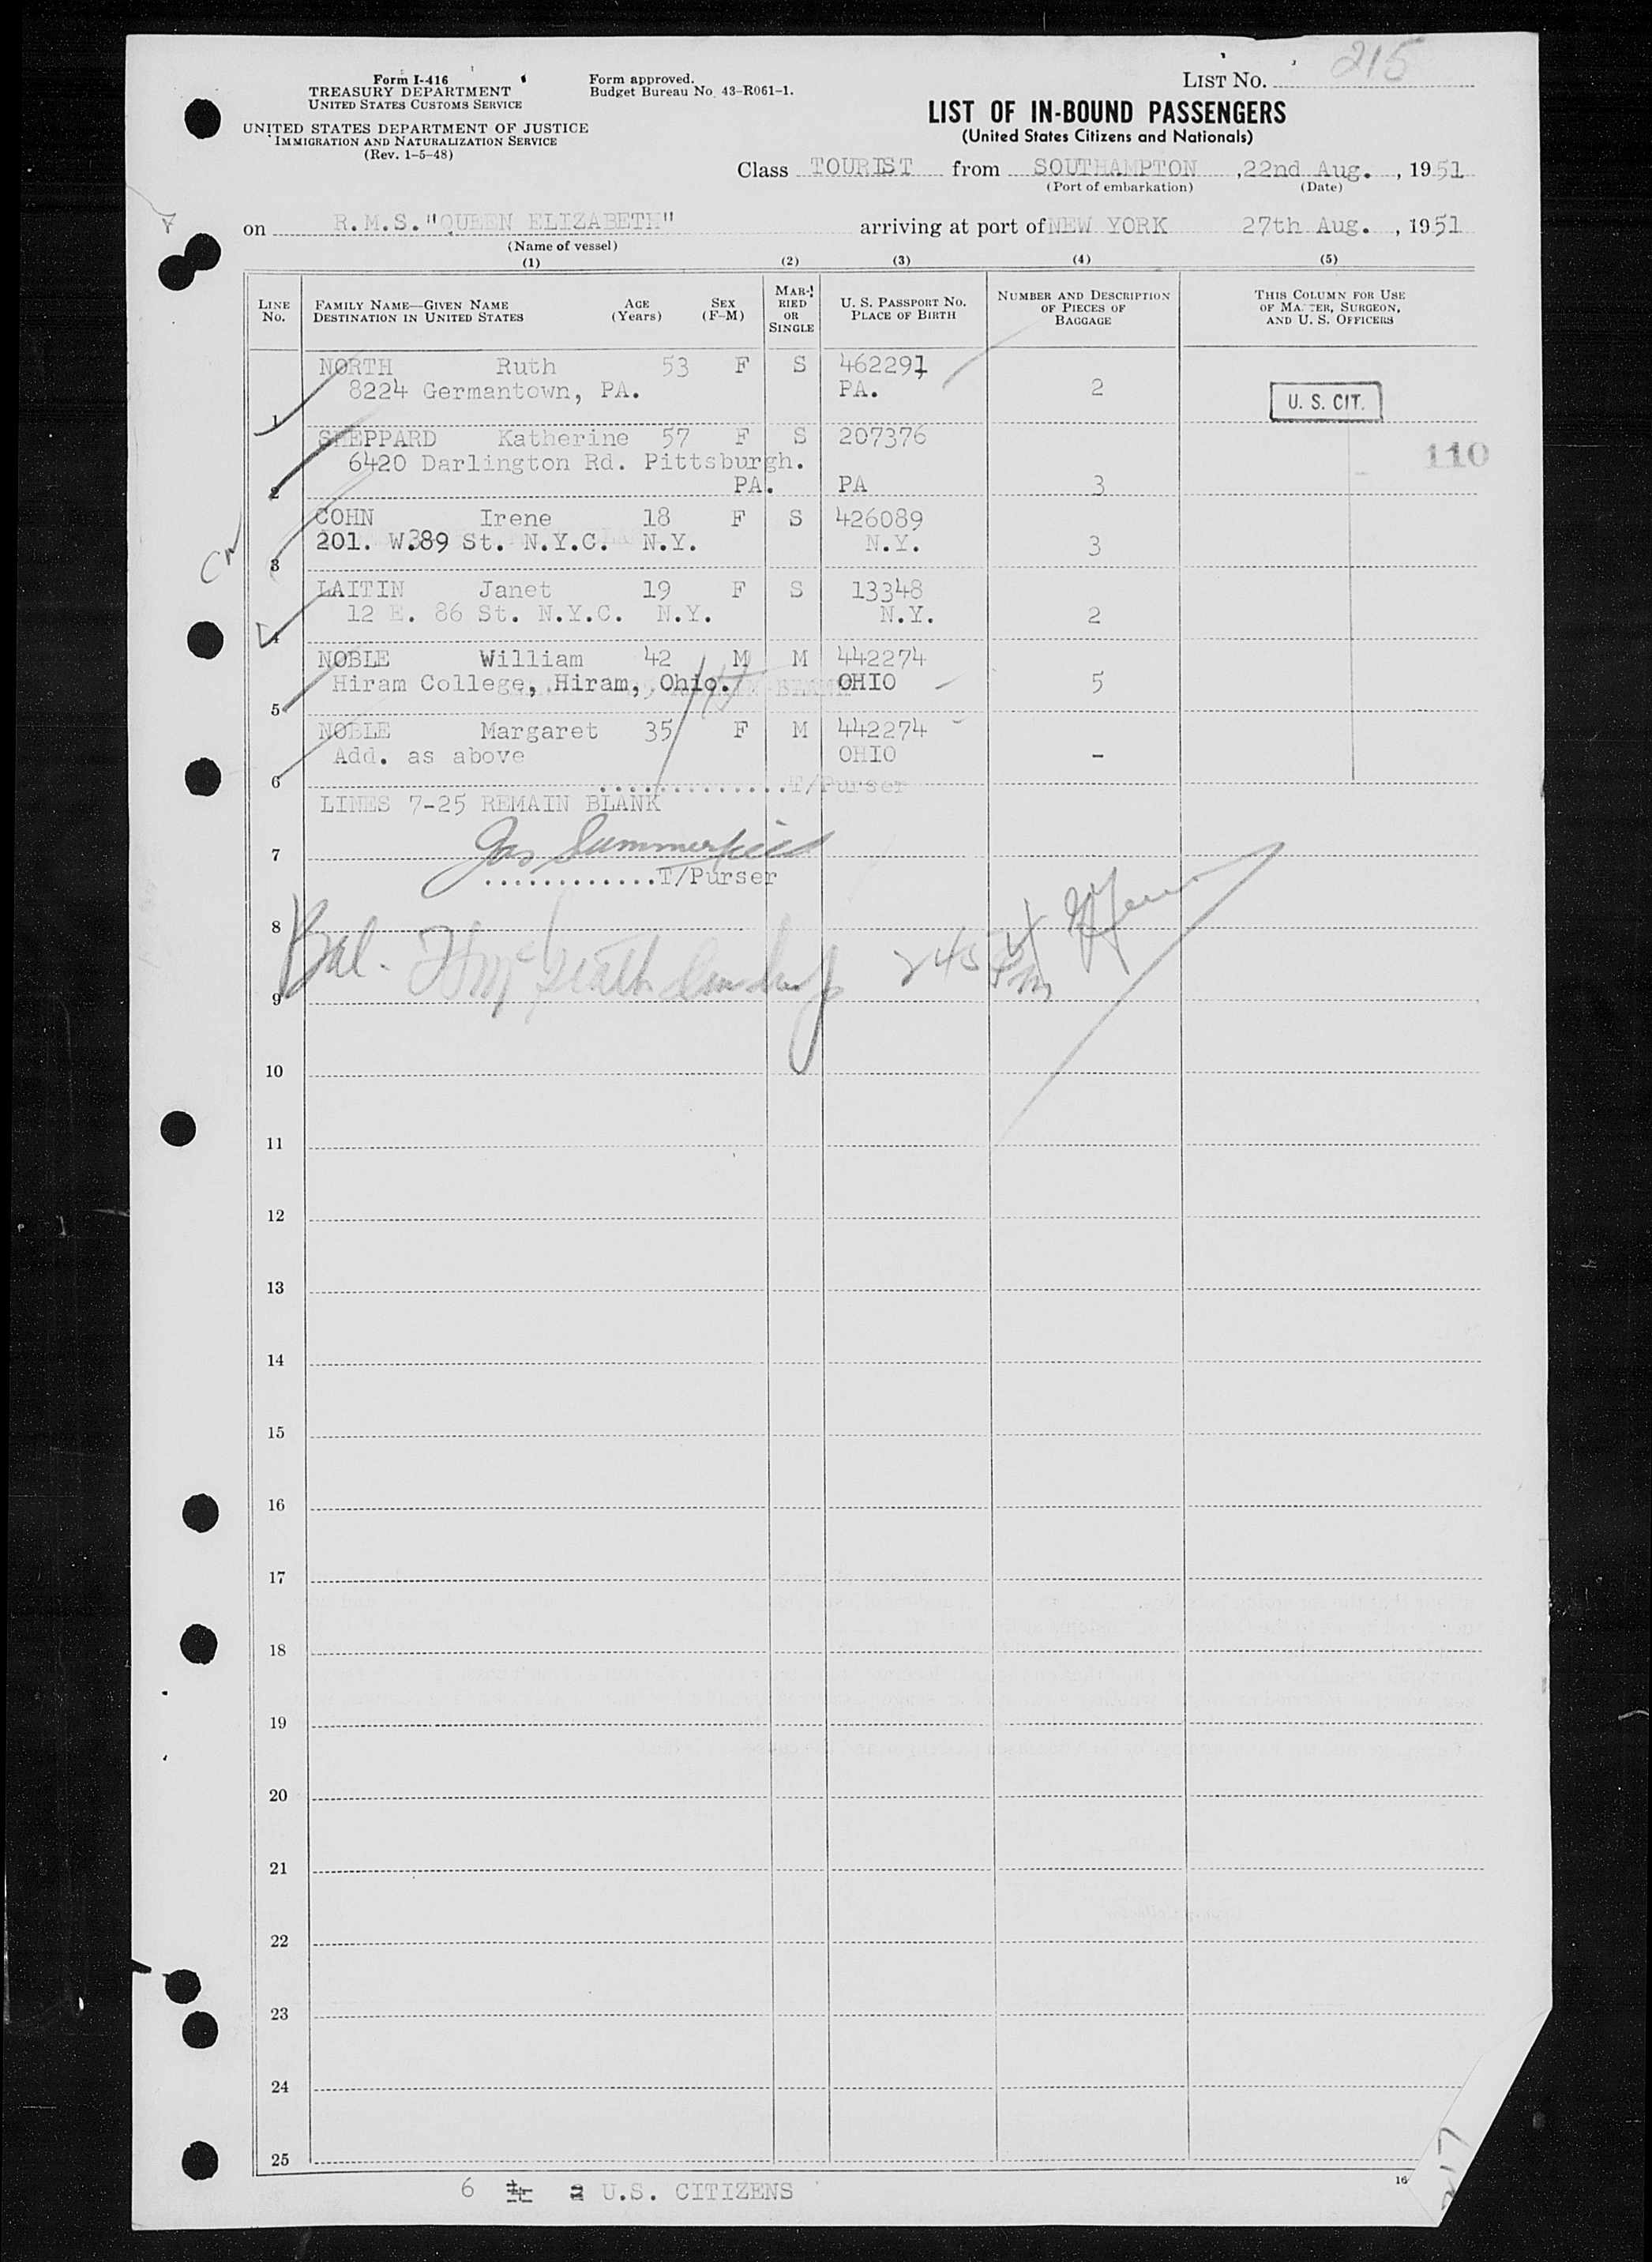 Form I-416
TREASURY DEPARTMENT
UNITED STATES CUSTOMS SERVICE
UNITED STATES DEPARTMENT OF JUSTICE
IMMIGRATION AND NATURALIZATION SERVICE
(Rev. 1-5-48)
Form approved.
Budget Bureau No. 43-R061-1.
LIST NO. 215
LIST OF IN-BOUND PASSENGERS
(United States Citizens and Nationals)
Class TOURIST from SOUTHAMPTON ,22nd Aug. , 1951
(Port of embarkation) (Date)
on R.M.S."QUEEN ELIZABETH" arriving at port of NEW YORK 27th Aug. , 1951
(Name of vessel)
(1) (2) (3) (4) (5)
LINE NO. FAMILY NAME—GIVEN NAME DESTINATION IN UNITED STATES AGE (Years) SEX (F-M) MARRIED OR SINGLE U. S. PASSPORT NO. PLACE OF BIRTH NUMBER AND DESCRIPTION OF PIECES OF BAGGAGE THIS COLUMN FOR USE OF MASTER, SURGEON, AND U. S. OFFICERS
NORTH Ruth 53 F S 462291
8224 Germantown, PA. PA. 2 U. S. CIT.
1
SHEPPARD Katherine 57 F S 207376
6420 Darlington Rd. Pittsburgh. 110
2 PA. PA 3
COHN Irene 18 F S 426089
201. W.89 St. N.Y.C. N.Y. N.Y. 3
3
LAITIN Janet 19 F S 13348
12 E. 86 St. N.Y.C. N.Y. N.Y. 2
4
NOBLE William 42 M M 442274
Hiram College, Hiram, Ohio. OHIO 5
5
NOBLE Margaret 35 F M 442274
Add. as above OHIO -
6 ..............T/Purser
LINES 7-25 REMAIN BLANK
7 Jas Summerfield
............T/Purser
8
Bal. 245 PM
9
10
11
12
13
14
15
16
17
18
19
20
21
22
23
24
25
16
6 U.S. CITIZENS
217